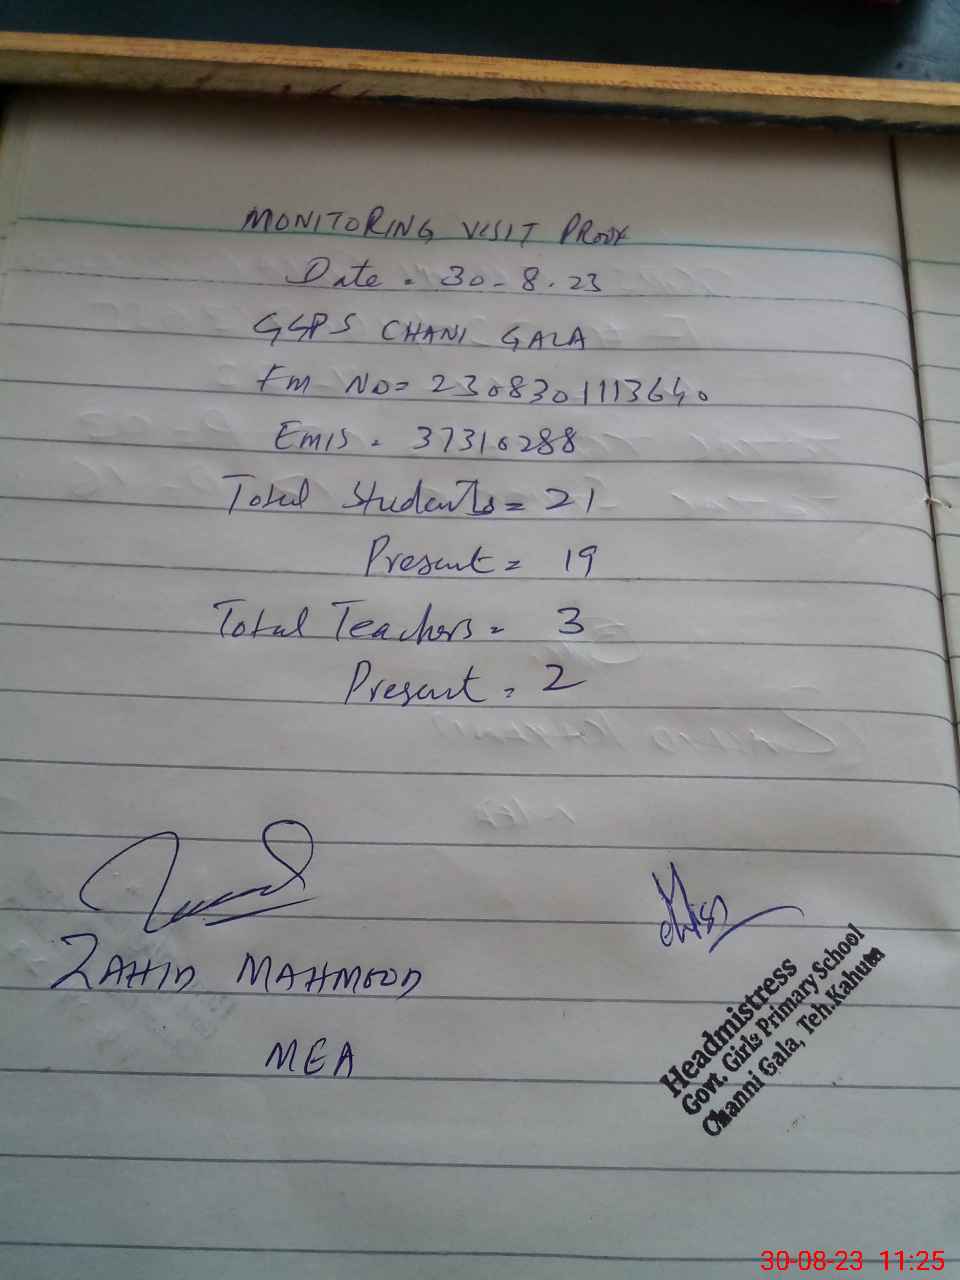 MONITORING VISIT PROOF
Date = 30-8-23
GGPS CHANI GALA
Fm NO= 2308301113640
Emis = 37310288
Total Students = 21
Present = 19
Total Teachers = 3
Present = 2
ZAHID MAHMOOD
MEA
Headmistress
Govt. Girls Primary School
Channi Gala, Teh.Kahuta
30-08-23 11:25